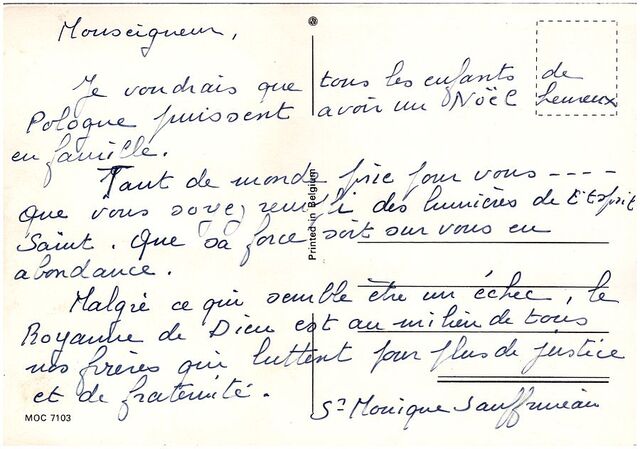 Monseigneur,
Je voudrais que tous les enfants de
Pologne puissent avoir un Noël heureux
en famille.
Tant de monde prie pour vous ----
que vous soyez rempli des lumières de l'Esprit
Saint. Que sa force soit sur vous en
abondance.
Malgré ce qui semble être un échec, le
Royaume de Dieu est au milieu de tous
nos frères qui luttent pour plus de justice
et de fraternité.
Sr Monique
MOC 7103
Printed in Belgium